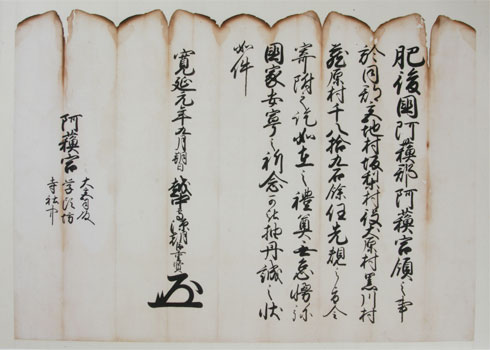 肥後國阿蘇郡阿蘇宮領之事
於同郡宮地村坂梨村役犬原村黒川村
蔵原村千八拾九石餘任先規之旨令
寄附之訖如在之禮奠無怠慢弥
國家安寧之祈念可被抽丹誠之状
如件
寛延元年九月朔日 越中守源朝臣重賢
阿蘇宮
大宮司殿
学頭坊
寺社中